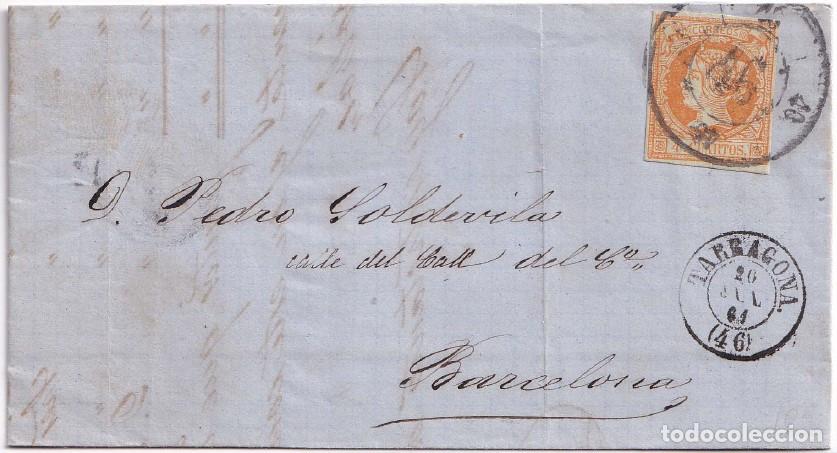 CORREOS
4 CUARTOS.
D. Pedro Soldevila
calle del Call del Co,,
TARRAGONA.
20
JUL
61
(46)
Barcelona
todocoleccion